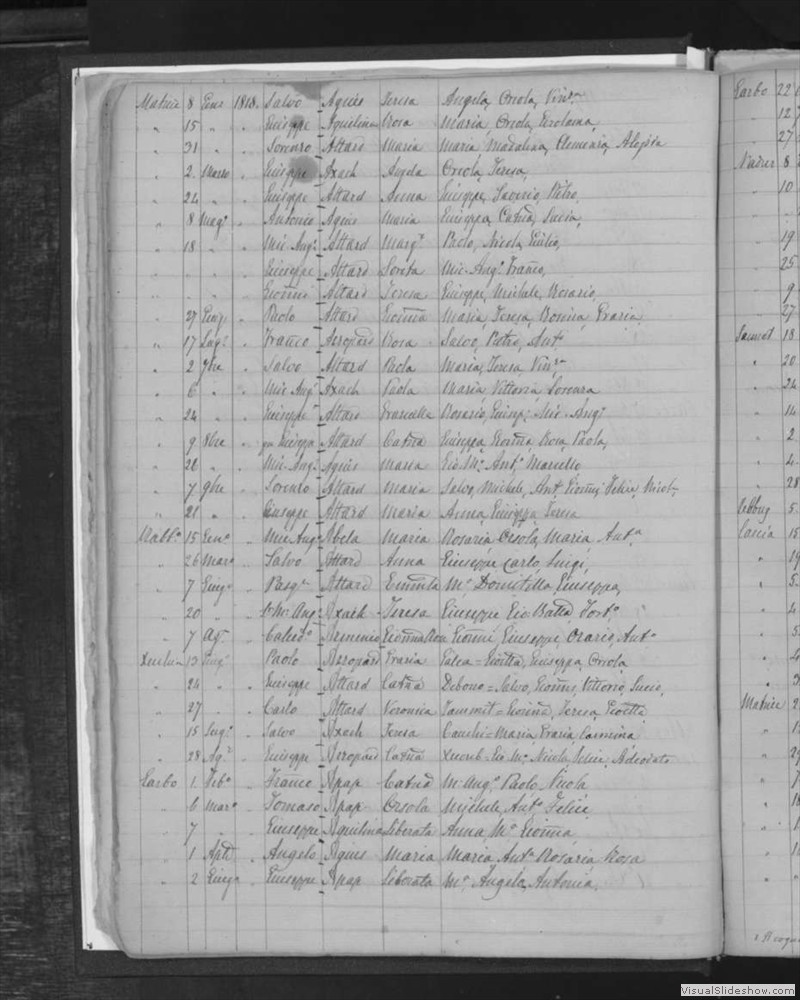 Matrice 8 Genr 1818. Salvo Agius Teresa Angela, Orsola, Vinª
" 15 " " Giuseppe Aquilina Rosa Maria Orsola, Gerolama,
" 31 " " Lorenzo Attard Maria Maria Madalina, Clemenzia, Aloisia
" 2 Marzo " Giuseppe Axach Angela Orsola, Teresa,
" 24 " " Giuseppe Attard Anna Giuseppe, Saverio, Pietro,
" 8 Magº " Antonio Agius Maria Giuseppa, Catña, Lucia,
" 18 " " Mic. Angº Attard Margª Paolo, Nicola, Giulio,
" " " " Giuseppe Attard Loreta Mic. Angº Franco,
" " " " Gioñni Attard Teresa Giuseppe, Michele, Rosario,
" 27 Giugº " Paolo Attard Gioñna Maria, Teresa, Gioñna, Grazia,
" 17 Lugº " Franco Aeropard Rosa Salvo, Pietro, Antº
" 2 9bre " Salvo Attard Paola Maria, Teresa, Vinª
" 6 " " Mic. Angº Axach Paola Maria, Vittoria, Lorenza
" 24 " " Giuseppe Attard Graziella Rosario, Giuseppe, Mic. Angº
" 9 8bre " Giuseppe Attard Catña Giuseppa, Gioñna, Rosa, Paola,
" 22 " " Mic. Angº Agius Maria Gio Mª Antº Marcello
" 7 9bre " Lorenzo Attard Maria Salvo, Michele, Antº Gioñni, Felice, Nicolª
" 21 " " Giuseppe Attard Maria Anna, Giuseppa, Teresa
Rabbº 15 Genº " Mic Angº Abela Maria Rosaria Orsola, Maria Antª
" 26 Marº " Salvo Attard Anna Giuseppe Carlo, Luigi,
" 7 Giugº " Pasqº Attard Gioñna Mª Domitilla, Giuseppa,
" 20 " " Mic. Angº Axach Teresa Giuseppe Gio Batta, Fortº
" 7 Agº " Calcedº Armenia Gioñni Giuseppe Orazio, Antº
Xeuchia 13 Giugº " Paolo Aeropard Grazia Galea = Giuseppa, Orsola
" 24 " " Giuseppe Attard Catña Debono = Salvo, Gioñni, Vittorio, Lucio,
" 27 " " Carlo Attard Veronica Tammit = Gioñna, Teresa,
" 15 Lugº " Salvo Axach Teresa Cauchi = Maria Grazia Carmina
" 28 Agº " Giuseppe Aeropard Catña Xucreb = Gio Mª Nicola, Felice, Adeodato
Garbo 1 Febº " Franco Apap Catña M. Angº Paolo Nicola
" 6 Marº " Tomaso Apap Orsola Michele, Antº Felice
" 7 " " Giuseppe Aquilina Liberata Anna Mª Gioñna
" 1 Aple " Angelo Agius Maria Maria Antª Rosaria, Rosa
" 2 Giugº " Giuseppe Apap Liberata Mª Angela, Antonia,
Garbo 22
" 12
" 27
Nadur 8
" 10
" 19
" 25
" 9
" 27
Sannat 18
" 20
" 24
" 14
" 2
" 4
" 28
Zebbug 5
Caccia 15
" 19
" 5
" 4
" 5
" 4
Matrice 2
VisualSlideshow.com